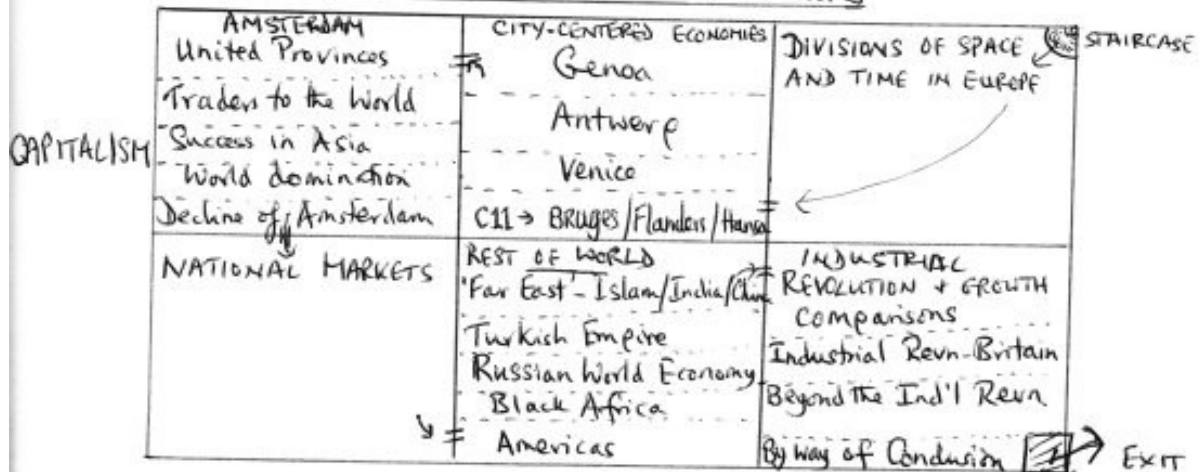 AMSTERDAM
United Provinces
Traders to the World
Success in Asia
World domination
Decline of Amsterdam
CAPITALISM
CITY-CENTERED ECONOMIES
Genoa
Antwerp
Venice
C11 → BRUGES/Flanders/Hansa
DIVISIONS OF SPACE
AND TIME IN EUROPE
STAIRCASE
NATIONAL MARKETS
REST OF WORLD
'Far East' - Islam/India/China
Turkish Empire
Russian World Economy
Black Africa
Americas
INDUSTRIAL
REVOLUTION + GROWTH
Comparisons
Industrial Revn-Britain
Beyond the Ind'l Revn
By way of Conclusion
EXIT